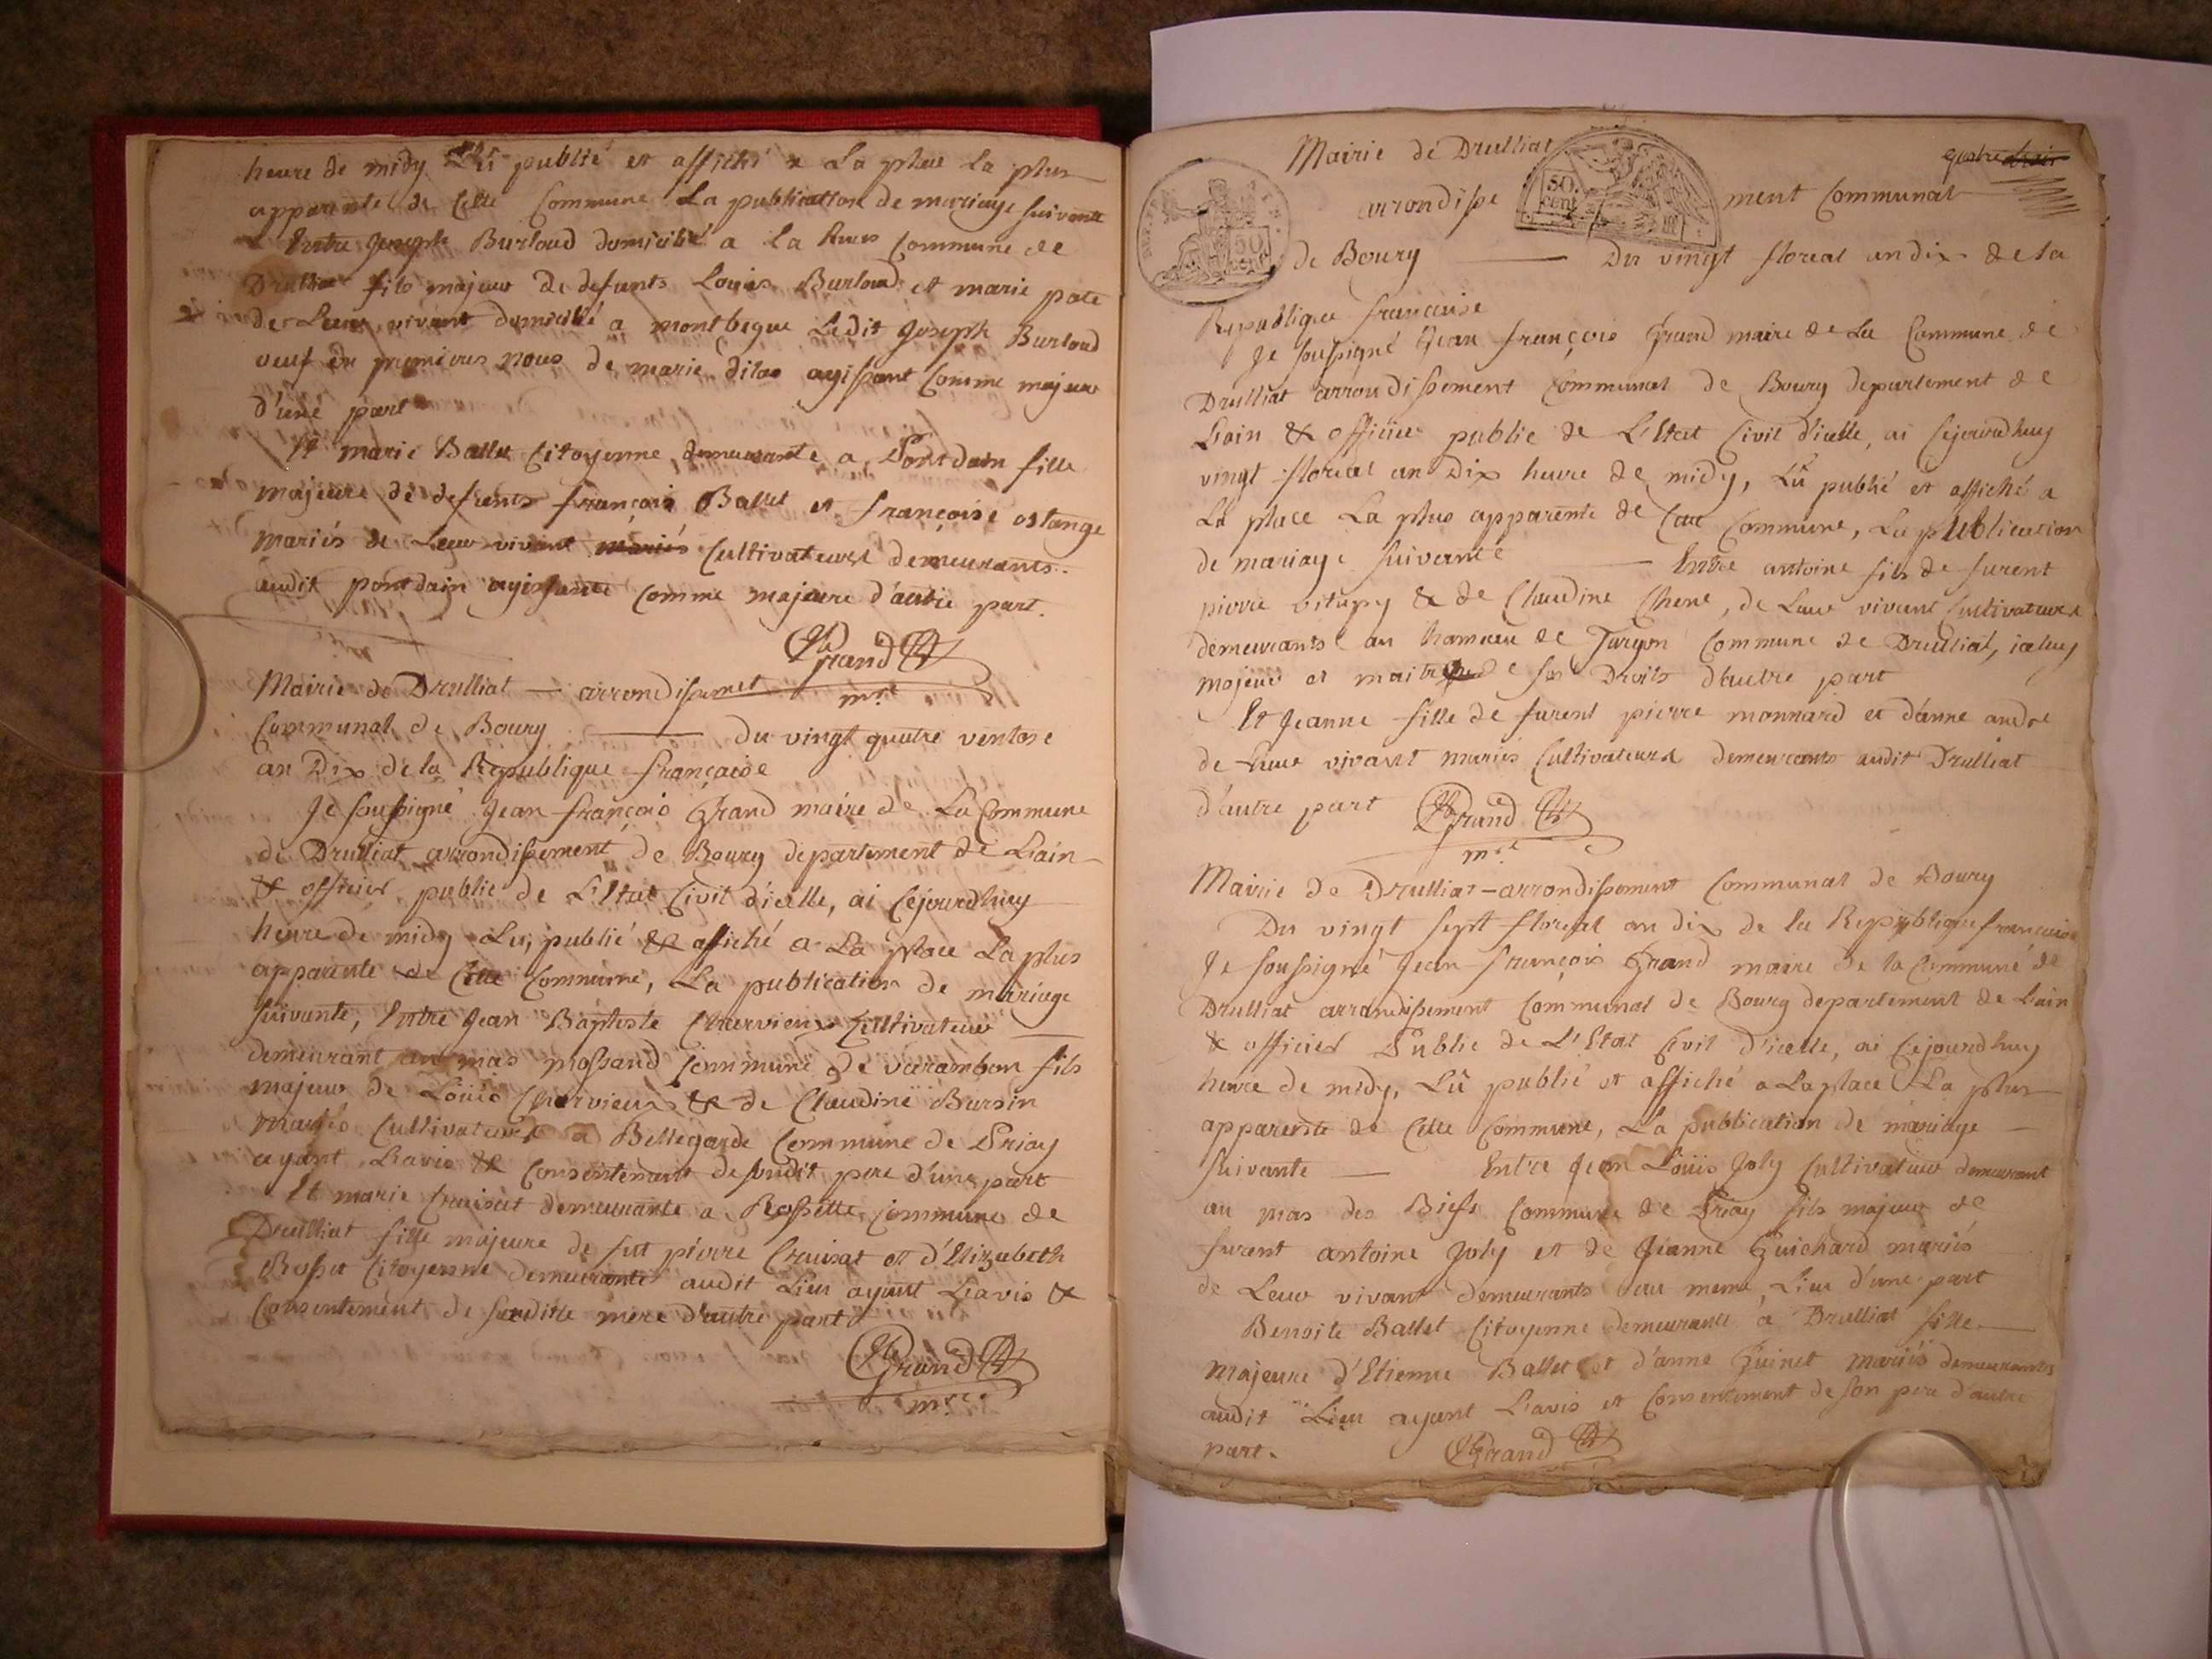 heure de midy Lû publié et affiché a La place La plus
apparente de Cette Commune La publication de mariage suivante
Entre Joseph Burloud domicilié a La Commune de
Drulliat fils majeur de defunts Louis Burloud et marie pate
de Leur vivant domicilié a montbegue Ledit Joseph Burloud
veuf en premieres nous de marie dilas agissant Comme majeur
d'une part
Et marie Ballet Citoyenne demeurante a Pontdain fille
majeure de defunts françois Ballet et françoise ostange
mariés de Leur vivant mariés Cultivateurs demeurants
audit pontdain agissante Comme majeure d'autre part.
Grand
mre
Mairie de Drulliat — arrondissement
Communal de Bourg — du vingt quatre ventose
an Dix de la Republique française
Je soussigné Jean françois Grand maire de La Commune
de Drulliat arrondissement de Bourg departement de Lain
& officier public de L'Etat Civil d'icelle, ai Cejourdhuy
heure de midy Lu, publié & affiché a La place La plus
apparente de Cette Commune, La publication de mariage
suivante, Entre Jean Baptiste Chervieux Cultivateur
demeurant au mas mossand Commune de varambon fils
majeur de Loüis Chervieux & de Claudine Bursin
mariés Cultivateurs a Bellegarde Commune de Priay
ayant Lavis & Consentement de sondit pere d'une part
Et marie Cruisat demeurante a Rossette Commune de
Drulliat fille majeure de fut pierre Cruisat et d'Elizabeth
Rosset Citoyenne demeurante audit Lieu ayant Lavis &
Consentement de sandite mere d'autre part
Grand
mre
Mairie de Drulliat
quatre trois
arrondisse ment Communal
50 cent
50 cent
de Bourg — Du vingt floreal an dix de la
Republique française
Je soussigné Jean françois Grand maire de La Commune de
Drulliat arrondissement Communal de Bourg departement de
Lain & officier public de L'Etat Civil d'icelle, ai Cejourdhuy
vingt floreal an Dix heure de midy, Lû publié et affiché a
La place La plus apparente de Cette Commune, La publication
de mariage suivante — Entre antoine fils de furent
pierre vitupy & de Claudine Chene, de Leur vivant Cultivateurs
demeurants au hameau de Turgon Commune de Drulliat, iceluy
majeur et maitre de ses Droits d'autre part
Et Jeanne fille de furent pierre monnard et d'anne andre
de Leur vivant mariés Cultivateurs demeurants audit Drulliat
d'autre part Grand
mre
Mairie de Drulliat — arrondissement Communal de Bourg
Du vingt sept floreal an dix de la Republique française
Je soussigné Jean françois Grand maire de la Commune de
Drulliat arrondissement Communal de Bourg departement de Lain
& officier Public de L'Etat Civil d'icelle, ai Cejourdhuy
heure de midy, Lû publié et affiché a La place La plus
apparente de Cette Commune, La publication de mariage —
suivante — Entre Jean Loüis Joly Cultivateur demeurant
au mas des Biefs Commune de Priay fils majeur de
furent antoine Joly et de Jeanne Guichard mariés
de Leur vivant demeurants au meme Lieu d'une part
Benoite Ballet Citoyenne demeurante a Drulliat fille —
majeure d'Etienne Ballet et d'anne Guinet mariés demeurants
audit Lieu ayant Lavis et Consentement de son pere d'autre
part. Grand